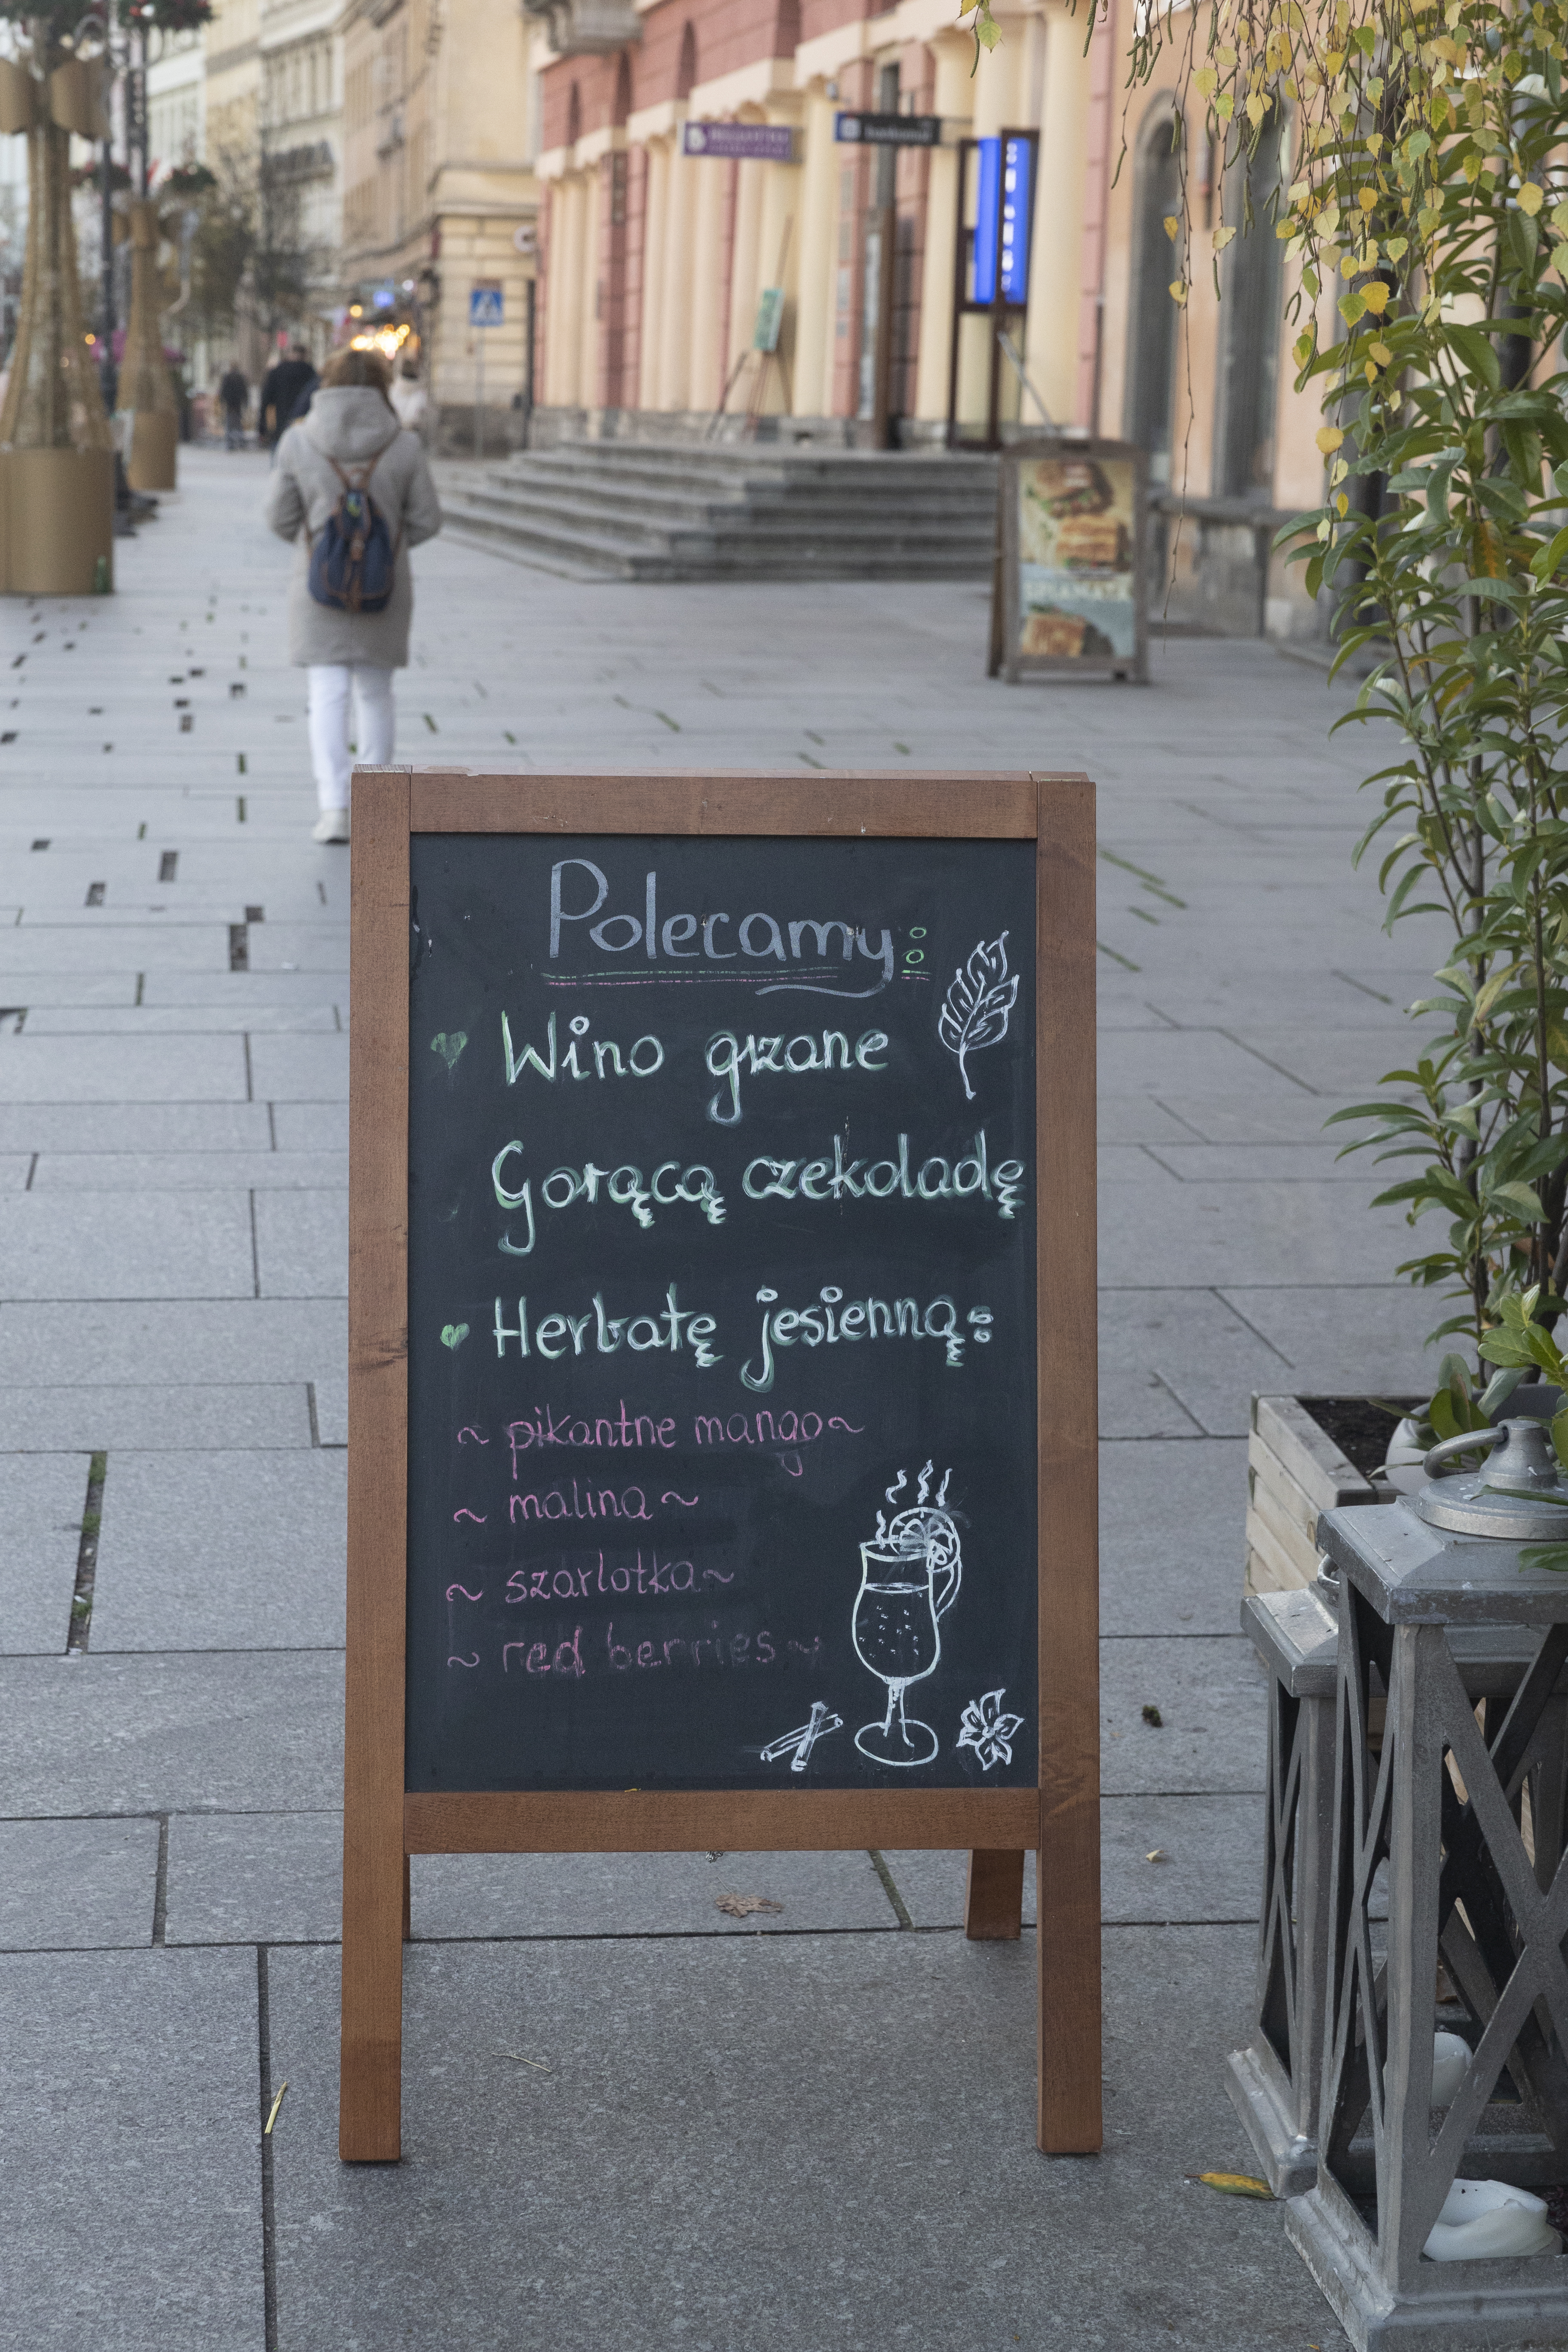 Polecamy:
Wino grzane
Gorącą czekoladę
Herbatę jesienną:
~ pikantne mango ~
~ malina ~
~ szarlotka ~
~ red berries ~